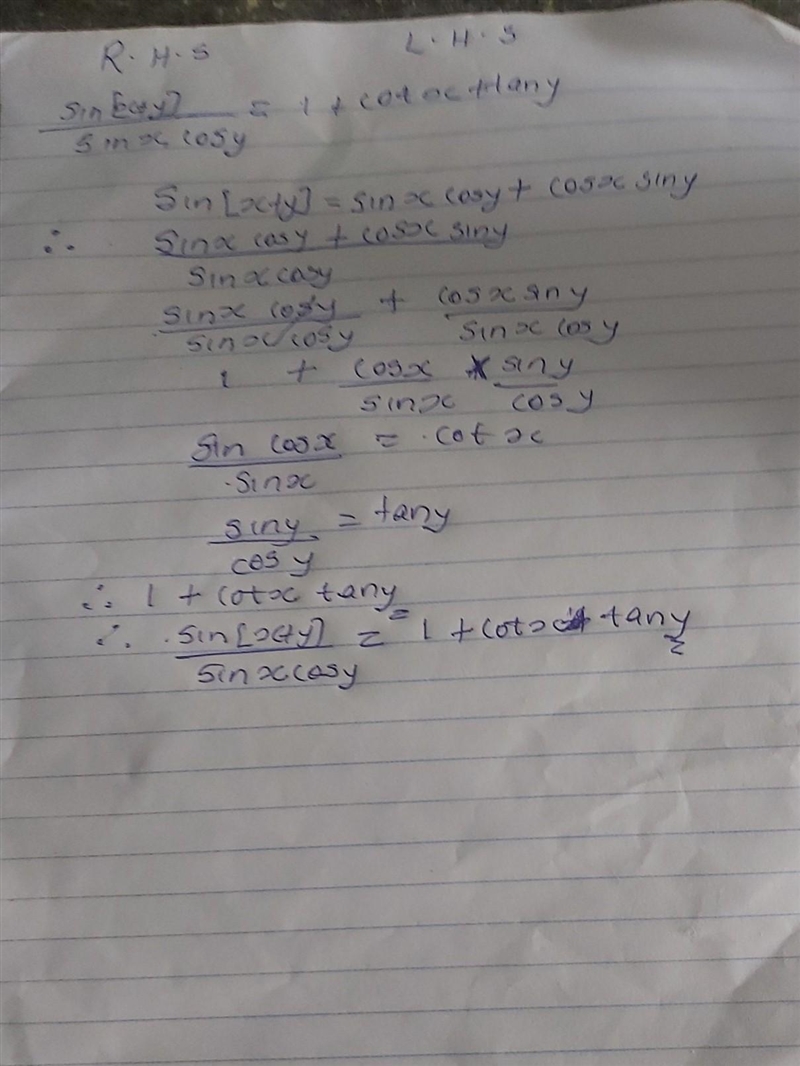 R.H.S L.H.S
sin[x+y] / sinx cosy = 1 + cotx + tany
Sin[x+y] = sinx cosy + cosx siny
∴ Sinx cosy + cosx siny / sinx cosy
sinx cosy / sinx cosy + cosx siny / sinx cosy
1 + cosx / sinx * siny / cosy
sin cosx / sinx = cotx
siny / cosy = tany
∴ 1 + cotx tany =
∴ sin[x+y] / sinx cosy = 1 + cotx tany